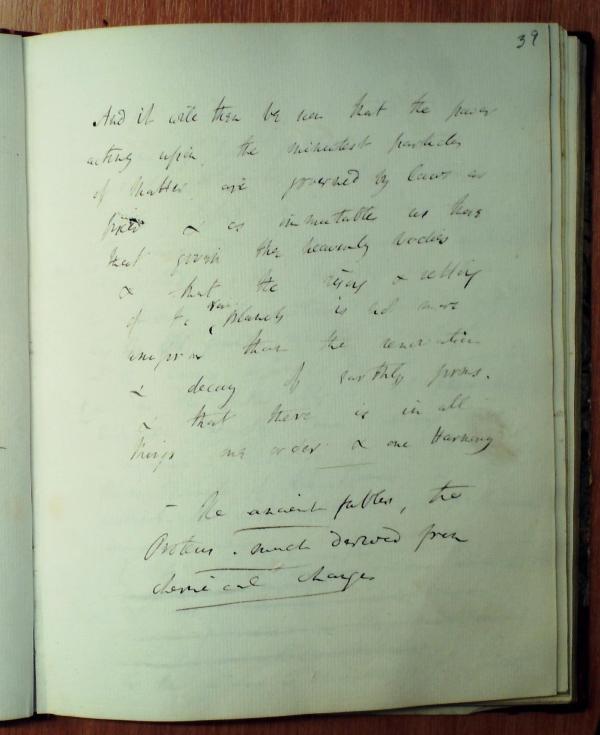 39
And it will then be seen that the power
acting upon the minutest particles
of Matter are governed by laws as
fixed & as immutable as those
that govern the heavenly bodies
& that the rising & setting
of the planets is not more
uniform than the renovation
& decay of earthly forms.
& that there is in all
things one order & one Harmony
- The ancient fables, the
Proteus. much derived from
chemical changes